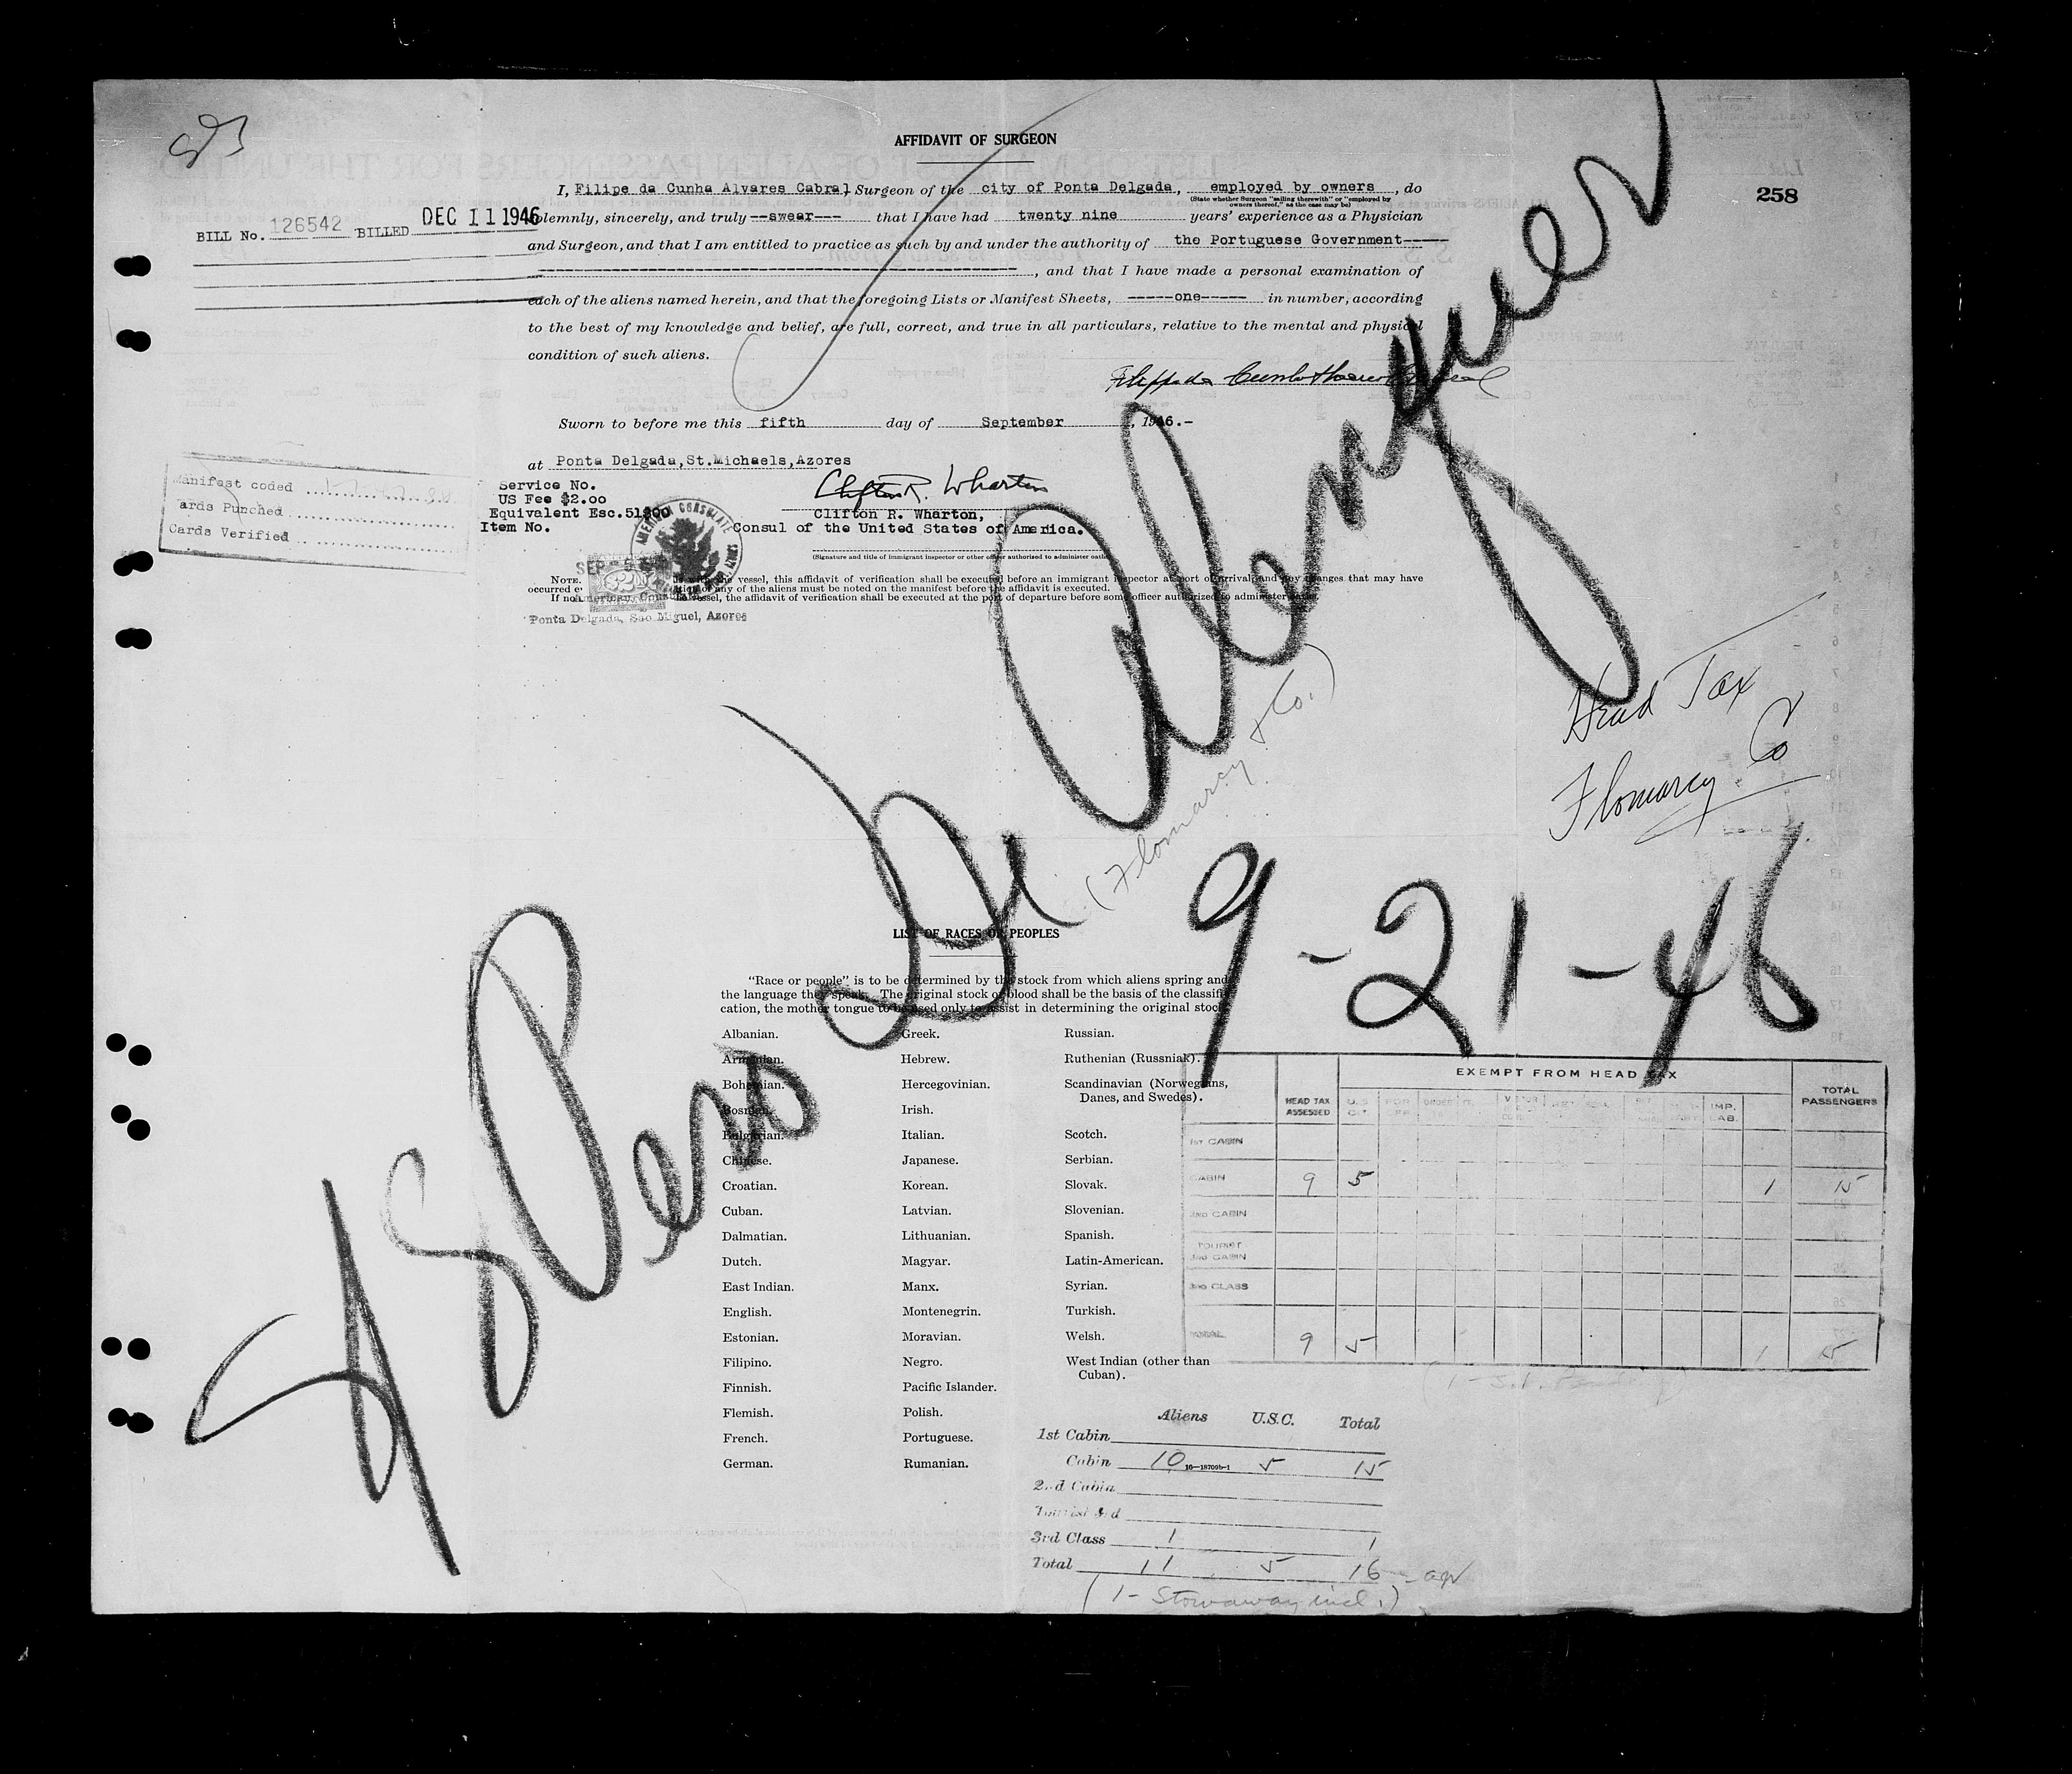 AFFIDAVIT OF SURGEON
258
I, Filipe da Cunha Alvares Cabral Surgeon of the city of Ponta Delgada, employed by owners, do
(State whether Surgeon "sailing therewith" or "employed by
owners thereof," as the case may be)
BILL No. 126542 BILLED DEC 11 1946
solemnly, sincerely, and truly --swear--- that I have had twenty nine years' experience as a Physician
and Surgeon, and that I am entitled to practice as such by and under the authority of the Portuguese Government-----
, and that I have made a personal examination of
each of the aliens named herein, and that the foregoing Lists or Manifest Sheets, -----one----- in number, according
to the best of my knowledge and belief, are full, correct, and true in all particulars, relative to the mental and physical
condition of such aliens.
Sworn to before me this fifth day of September, 1946.-
at Ponta Delgada,St.Michaels,Azores
Manifest coded
Cards Punched
Cards Verified
Service No.
US Fee $2.00
Equivalent Esc.51$00
Item No.
Clifton R. Wharton
Clifton R. Wharton,
Consul of the United States of America.
(Signature and title of immigrant inspector or other officer authorized to administer oaths)
AMERICAN CONSULATE
SEP 5
NOTE. vessel, this affidavit of verification shall be executed before an immigrant inspector at port of arrival, and any changes that may have
occurred of any of the aliens must be noted on the manifest before the affidavit is executed.
If not vessel, the affidavit of verification shall be executed at the port of departure before some officer authorized to administer oaths.
Ponta Delgada, São Miguel, Azores
SS Pero de Alenquer
(Flomarcy Co.)
9-21-46
Head Tax
Flomarcy Co
LIST OF RACES OR PEOPLES
"Race or people" is to be determined by the stock from which aliens spring and
the language they speak. The original stock or blood shall be the basis of the classifi-
cation, the mother tongue to be used only to assist in determining the original stock.
Albanian.
Armenian.
Bohemian.
Bosnian.
Bulgarian.
Chinese.
Croatian.
Cuban.
Dalmatian.
Dutch.
East Indian.
English.
Estonian.
Filipino.
Finnish.
Flemish.
French.
German.
Greek.
Hebrew.
Hercegovinian.
Irish.
Italian.
Japanese.
Korean.
Latvian.
Lithuanian.
Magyar.
Manx.
Montenegrin.
Moravian.
Negro.
Pacific Islander.
Polish.
Portuguese.
Rumanian.
Russian.
Ruthenian (Russniak).
Scandinavian (Norwegians,
Danes, and Swedes).
Scotch.
Serbian.
Slovak.
Slovenian.
Spanish.
Latin-American.
Syrian.
Turkish.
Welsh.
West Indian (other than
Cuban).
EXEMPT FROM HEAD TAX
HEAD TAX ASSESSED U.S. CIT. IMP. LAB. TOTAL PASSENGERS
1ST CABIN
CABIN 9 5 1 15
2ND CABIN
TOURIST
3RD CABIN
3RD CLASS
TOTAL 9 5 1 15
Aliens U.S.C. Total
1st Cabin
Cabin 10 5 15
16—18709b-1
2nd Cabin
Tourist 3rd
3rd Class 1 1
Total 11 5 16
(1 - Stowaway incl.)